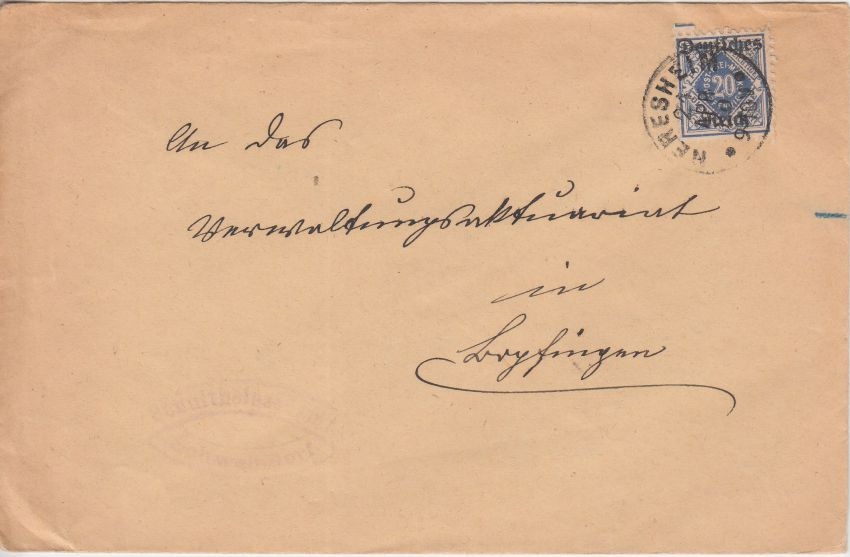 Deutsches
Reich
20
NERESHEIM
An das
Verwaltungsaktuariat
in
Bopfingen